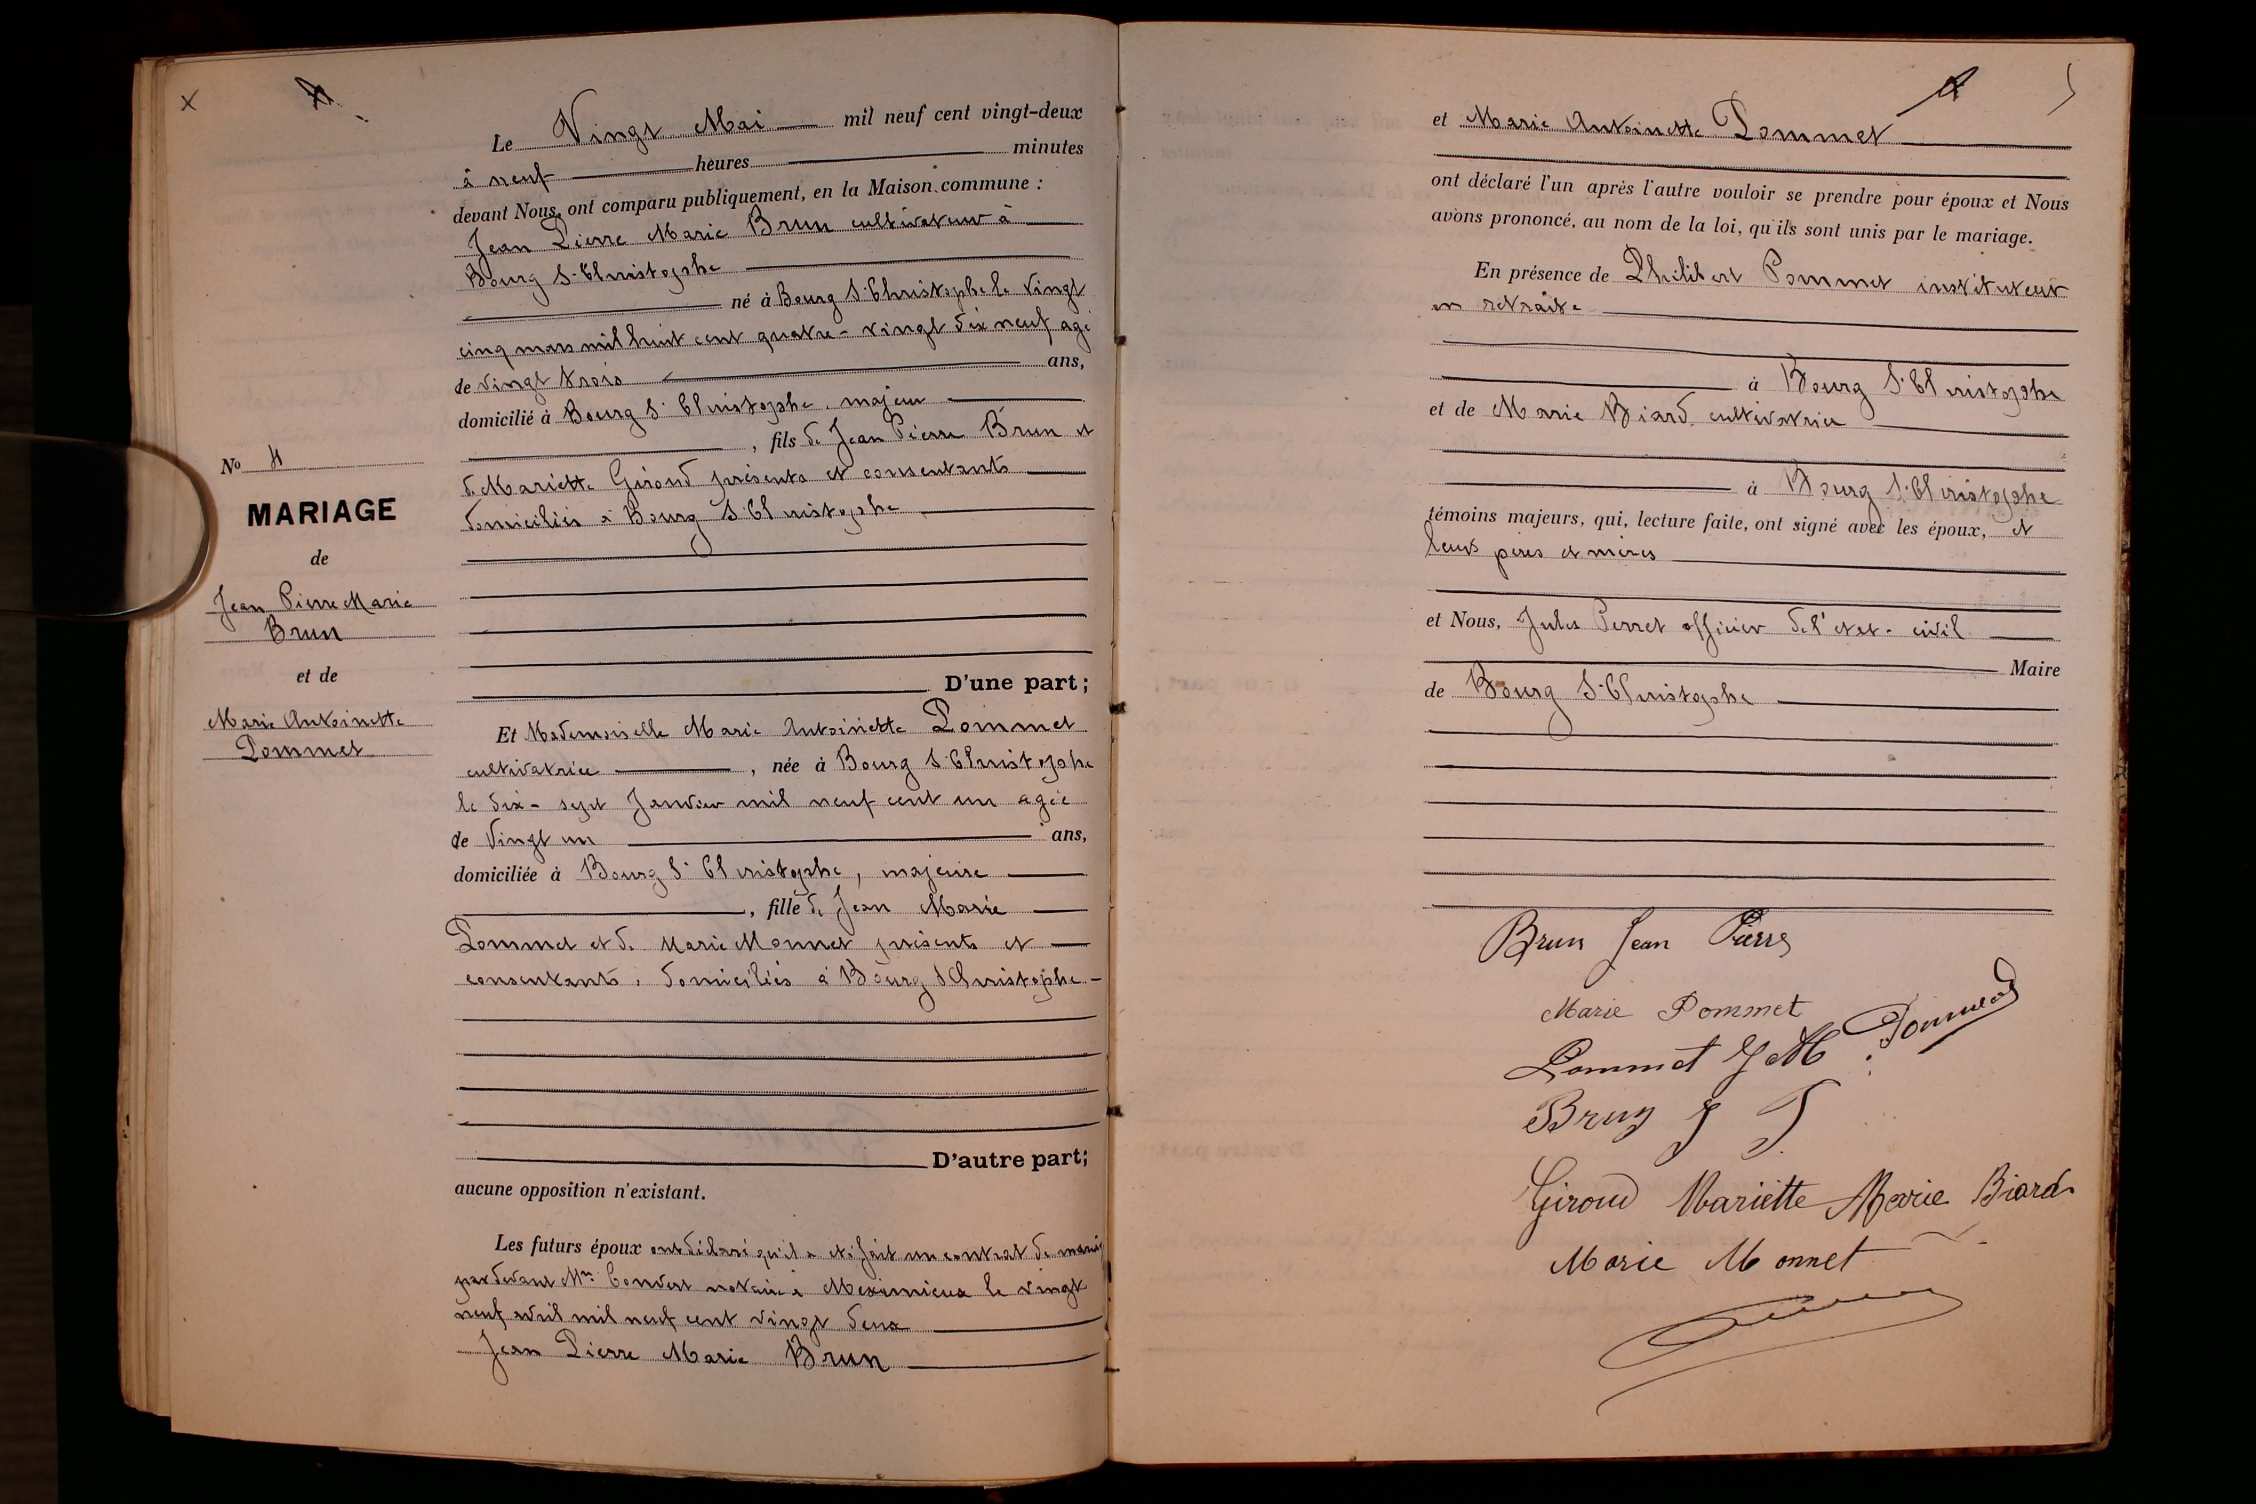 Le Vingt Mai mil neuf cent vingt-deux
à neuf heures minutes
devant Nous, ont comparu publiquement, en la Maison commune :
Jean Pierre Marie Brun cultivateur à
Bourg St Christophe
né à Bourg St Christophe le vingt
cinq mars mil huit cent quatre-vingt dix neuf agé
de vingt trois ans,
domicilié à Bourg St Christophe, majeur
, fils de Jean Pierre Brun et
de Mariette Giroud présents et consentants
domiciliés à Bourg St Christophe
D'une part ;
No 4
MARIAGE
de
Jean Pierre Marie
Brun
et de
Marie Antoinette
Pommet
Et Mademoiselle Marie Antoinette Pommet
cultivatrice , née à Bourg St Christophe
le dix-sept Janvier mil neuf cent un agée
de Vingt un ans,
domiciliée à Bourg St Christophe, majeure
, fille de Jean Marie
Pommet et de Marie Monnet présents et
consentants, domiciliés à Bourg St Christophe
D'autre part;
aucune opposition n'existant.
Les futurs époux ont déclaré qu'il a été fait un contrat de mariage
par devant Me Convert notaire à Meximieux le vingt
neuf avril mil neuf cent vingt deux
Jean Pierre Marie Brun
et Marie Antoinette Pommet
ont déclaré l'un après l'autre vouloir se prendre pour époux et Nous
avons prononcé, au nom de la loi, qu'ils sont unis par le mariage.
En présence de Philibert Pommet instituteur
en retraite
à Bourg St Christophe
et de Marie Biard cultivatrice
à Bourg St Christophe
témoins majeurs, qui, lecture faite, ont signé avec les époux, et
leurs pères et mères
et Nous, Jules Perret officier de l'etat-civil
Maire
de Bourg St Christophe
Brun Jean Pierre
Marie Pommet
Pommet J M Pommet
Brun J P
Giroud Mariette Marie Biard
Marie Monnet